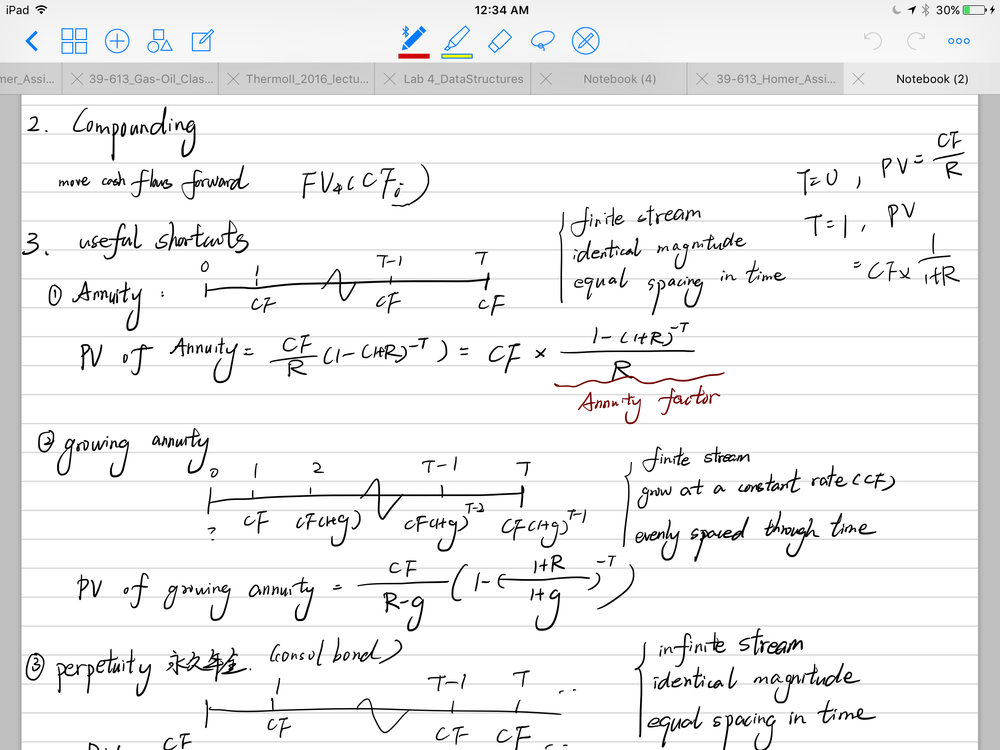 iPad 12:34 AM 30%
mer_Assi... 39-613_Gas-Oil_Clas... ThermoII_2016_lectu... Lab 4_DataStructures Notebook (4) 39-613_Homer_Assi... Notebook (2)
2. Compounding
move cash flows forward FV₄(CFᵢ)
T=0, PV = CF/R
T=1, PV
= CF × 1/1+R
3. useful shortcuts
finite stream
identical magnitude
equal spacing in time
0 1 T-1 T
① Annuity:
CF CF CF
PV of Annuity = CF/R (1-(1+R)^-T) = CF × 1-(1+R)^-T/R
Annuity factor
② growing annuity
0 1 2 T-1 T
? CF CF(1+g) CF(1+g)^T-2 CF(1+g)^T-1
finite stream
grow at a constant rate (CF)
evenly spaced through time
PV of growing annuity = CF/R-g (1-(1+R/1+g)^-T)
③ perpetuity 永久年金. (consol bond)
1 T-1 T ..
CF CF CF ..
infinite stream
identical magnitude
equal spacing in time
CF